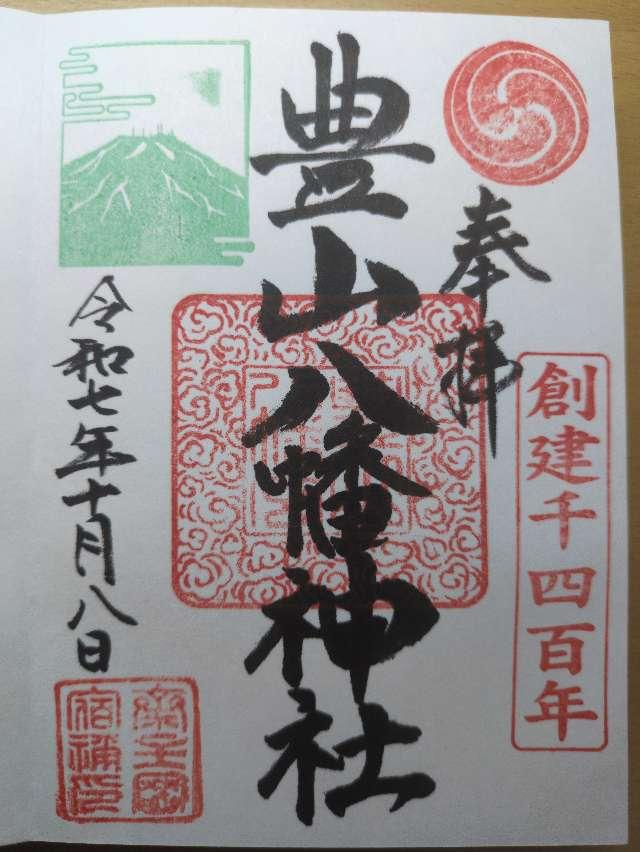 奉拝
創建千四百年
豊山八幡神社
令和七年十月八日